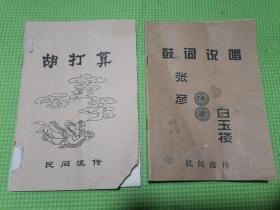 胡打算
民间流传
鼓词说唱
张彦
休妻
白玉楼
民间流传